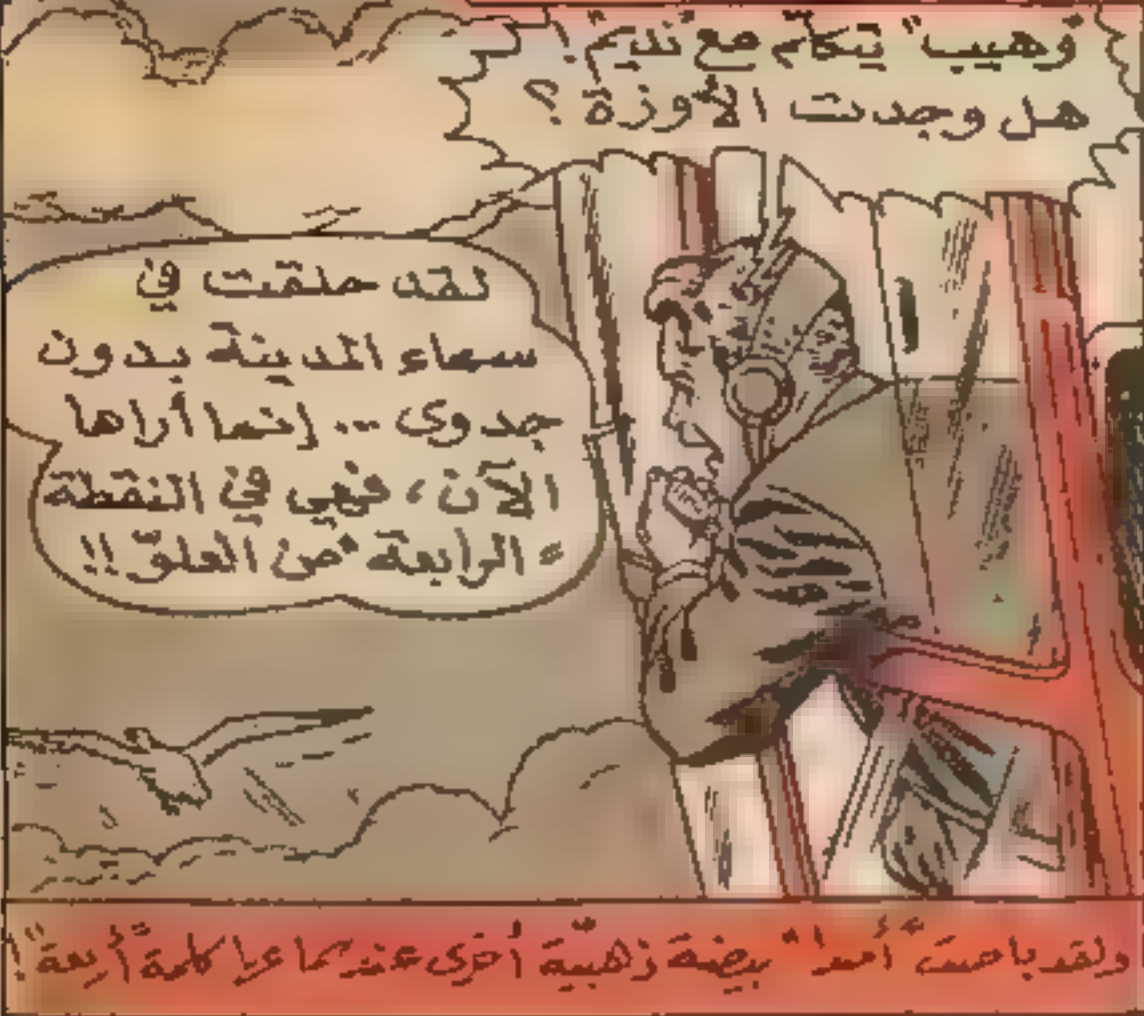 "وهيب" يتكلم مع "نديم"!
هل وجدت الأوزة ؟
لقد حلقت في
سماء المدينة بدون
جدوى ... إنما أراها
الآن ، فهي في النقطة
الرابعة من العلوّ !!
ولقد باضت بيضة ذهبيّة أخرى عندما كلمة "أربعة"!